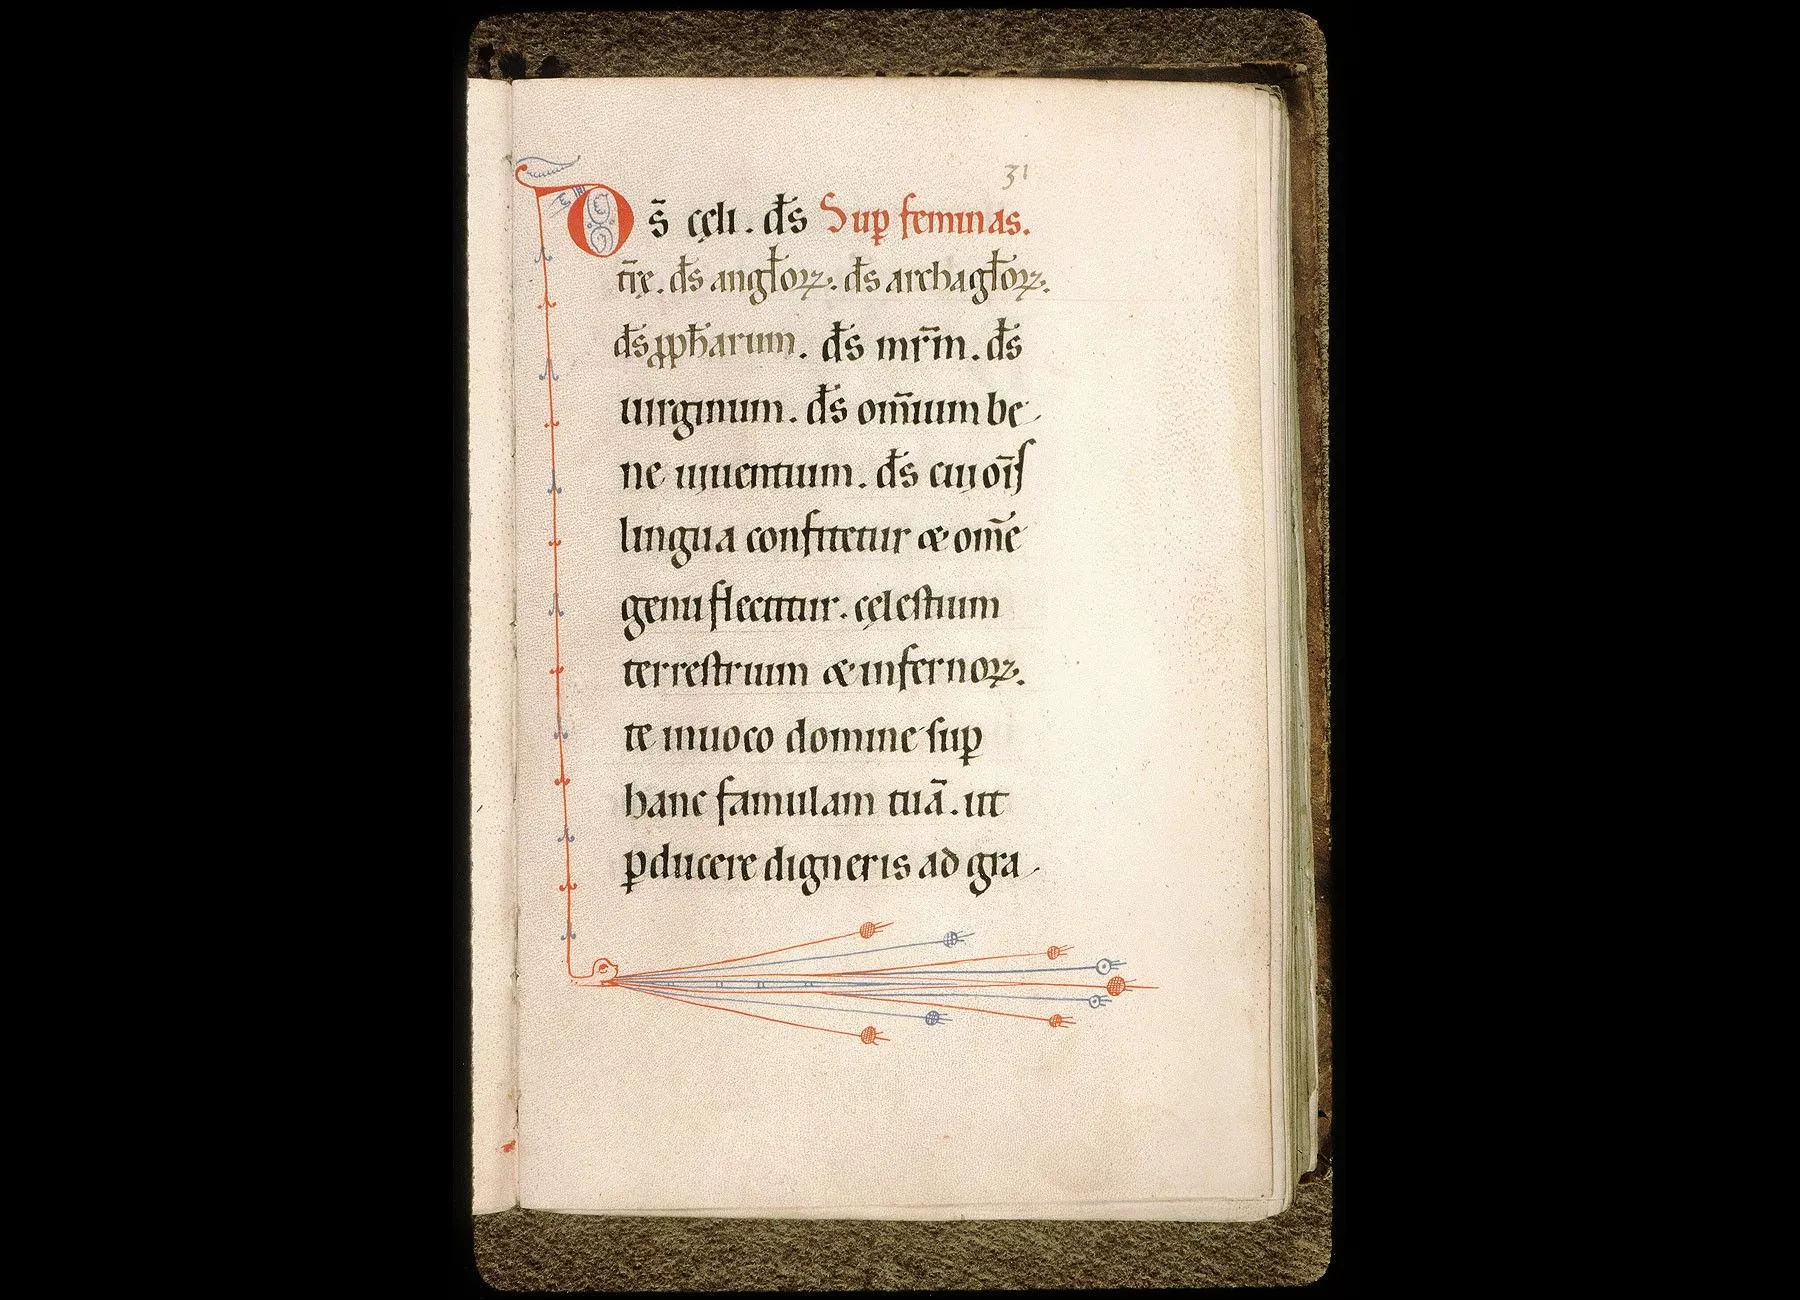 31
Ds̄ cęli. d̄s Suꝑ feminas.
tr̄ę. d̄s angl̄oꝝ. d̄s archagl̄oꝝ.
d̄s ꝓph̄arum. d̄s mr̄m. d̄s
uirginum. d̄s om̄ium be
ne uiuentium. d̄s cui oīſ
lingua confitetur & om̄e
genu flectitur. cęleſtium
terreſtrium & infernoꝝ.
te inuoco domine ſuꝑ
hanc famulam tuā. ut
ꝑducere digneris ad gra